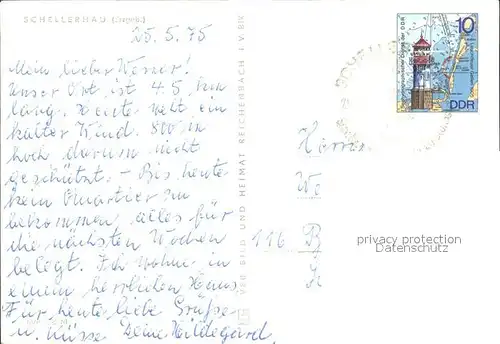 SCHELLERHAU (Erzgeb.)
25.5.75
Mein lieber Werner!
Unser Ort ist 4.5 km
lang. Heute geht ein
kalter Wind. 800 m
hoch darum nicht
geschützt. – Bis heute
kein Quartier zu
bekommen alles für
die nächsten Wochen
belegt. Ich wohne in
einem herrlichen Haus
Für heute liebe Grüße
u. Küsse Deine Hildegard
VEB BILD UND HEIMAT REICHENBACH I. V.
10
DDR
Herrn
We
116 B
privacy protection
Datenschutz